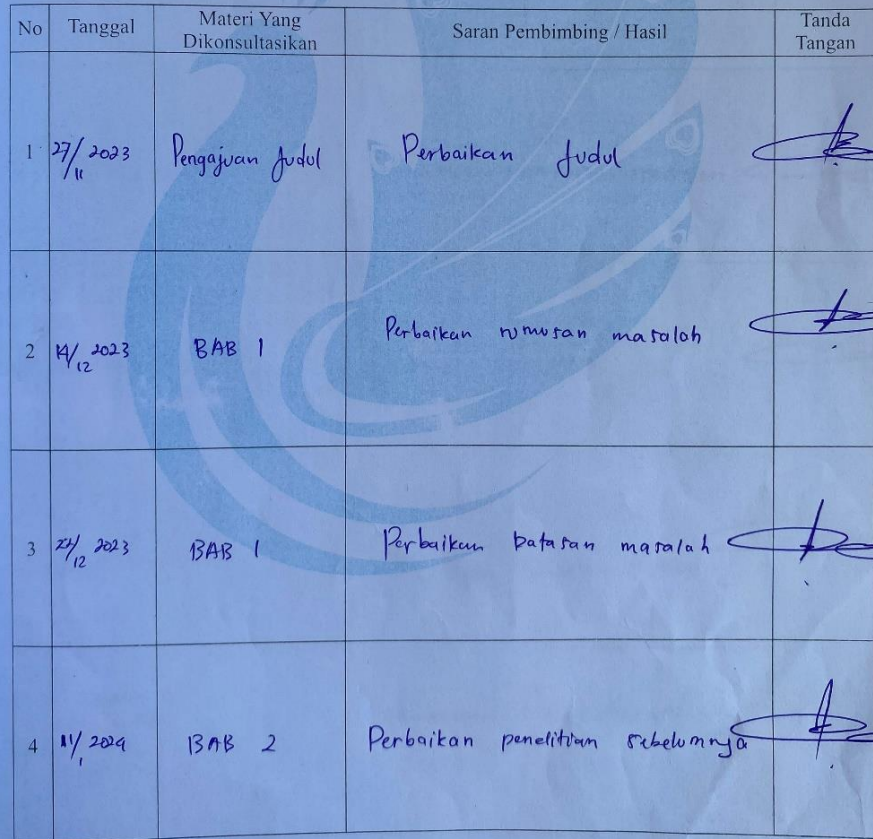 No Tanggal Materi Yang Dikonsultasikan Saran Pembimbing / Hasil Tanda Tangan
1 27/11 2023 Pengajuan Judul Perbaikan Judul
2 14/12 2023 BAB 1 Perbaikan rumusan masalah
3 /12 2023 BAB 1 Perbaikan batasan masalah
4 11/1 2024 BAB 2 Perbaikan penelitian sebelumnya